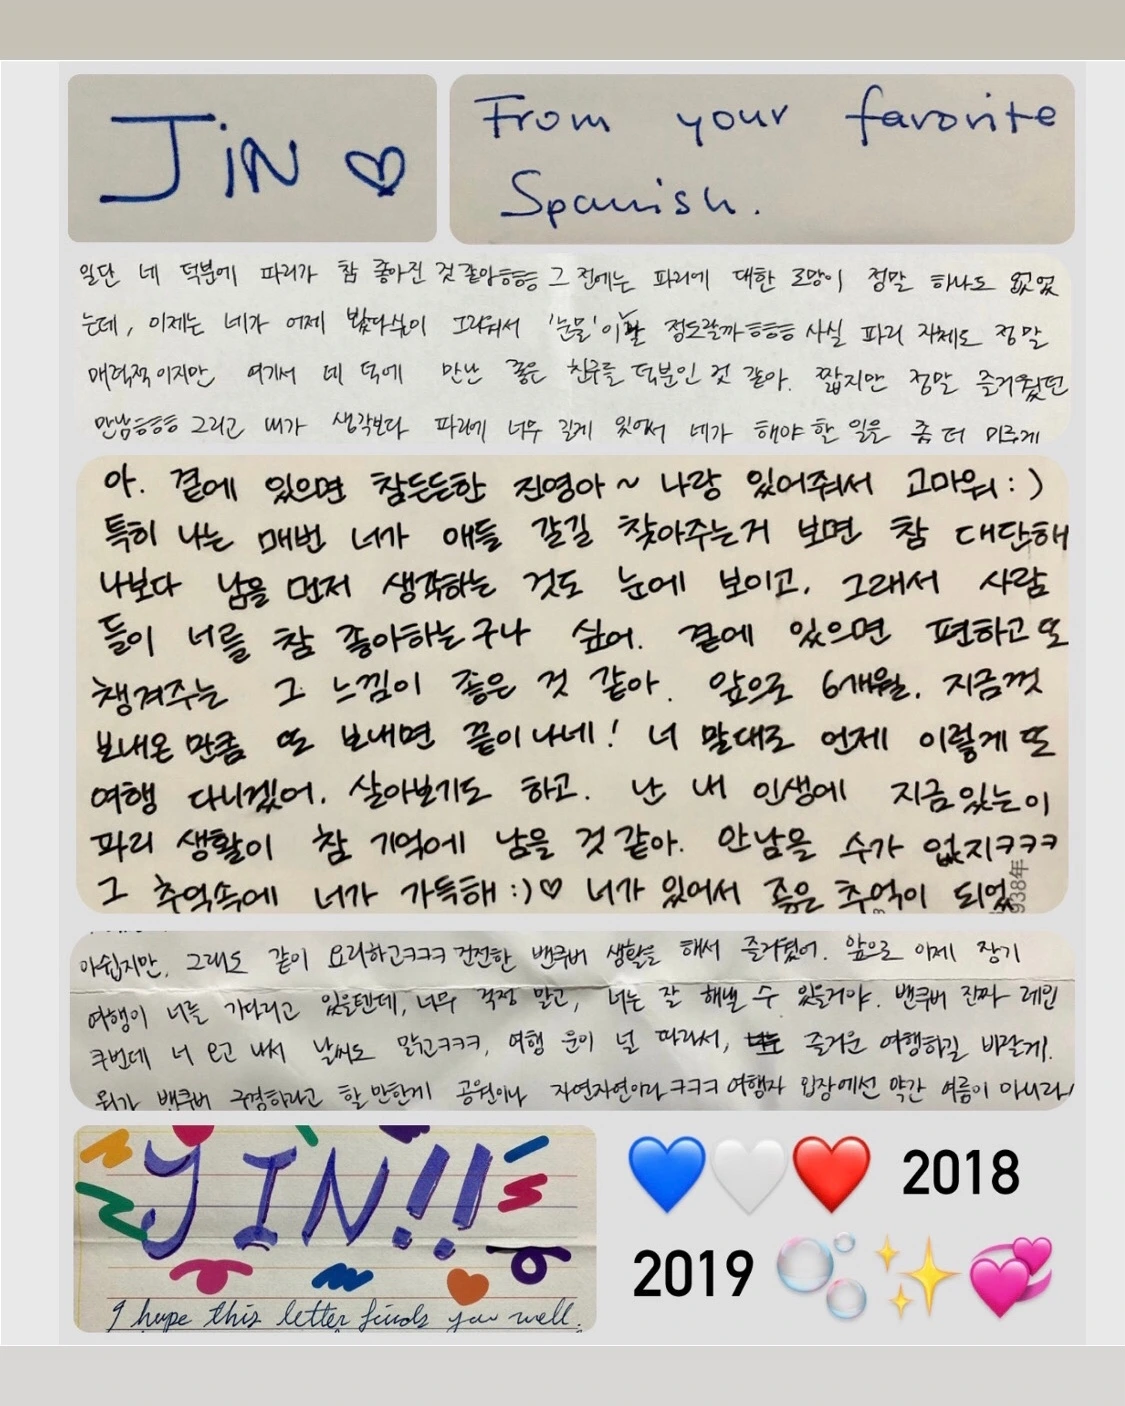 JiN ♡
From your favorite
Spanish.
일단 네 덕분에 파리가 참 좋아진 것 같아ㅎㅎㅎ 그 전에는 파리에 대한 로망이 정말 하나도 없었
는데, 이제는 네가 어제 봤다싶이 그리워서 '눈물'이 날 정도랄까ㅎㅎㅎ 사실 파리 자체도 정말
매력적이지만 여기서 네 덕에 만난 좋은 친구들 덕분인 것 같아. 짧지만 정말 즐거웠던
만남ㅎㅎㅎ 그리고 내가 생각보다 파리에 너무 길게 있어서 네가 해야 할 일을 좀 더 미루게
아. 곁에 있으면 참든든한 진영아~ 나랑 있어줘서 고마워:)
특히 나는 매번 너가 애들 갈길 찾아주는거 보면 참 대단해
나보다 남을 먼저 생각하는 것도 눈에 보이고, 그래서 사람
들이 너를 참 좋아하는구나 싶어. 곁에 있으면 편하고 또
챙겨주는 그 느낌이 좋은 것 같아. 앞으로 6개월, 지금껏
보내온 만큼 또 보내면 끝이 나네! 너 말대로 언제 이렇게 또
여행 다니겠어. 살아보기도 하고. 난 내 인생에 지금있는 이
파리 생활이 참 기억에 남을 것 같아. 안남을 수가 없지ㅋㅋㅋ
그 추억속에 너가 가득해:)♡ 너가 있어서 좋은 추억이 되었
938年
아쉽지만, 그래도 같이 요리하고ㅋㅋㅋ 건전한 밴쿠버 생활을 해서 즐거웠어. 앞으로 이제 장기
여행이 너를 기다리고 있을텐데, 너무 걱정 말고, 너는 잘 해낼 수 있을거야. 밴쿠버 진짜 레인
쿠번데 너 오고 내서 날씨도 맑고ㅋㅋㅋ, 여행 운이 널 따라서, 즐거운 여행하길 바랄게.
뭐가 밴쿠버 구경하라고 할 만한게 공원이나 자연자연이라ㅋㅋㅋ 여행자 입장에선 약간 여름이 아니라
JIN!!
I hope this letter finds you well.
2018
2019